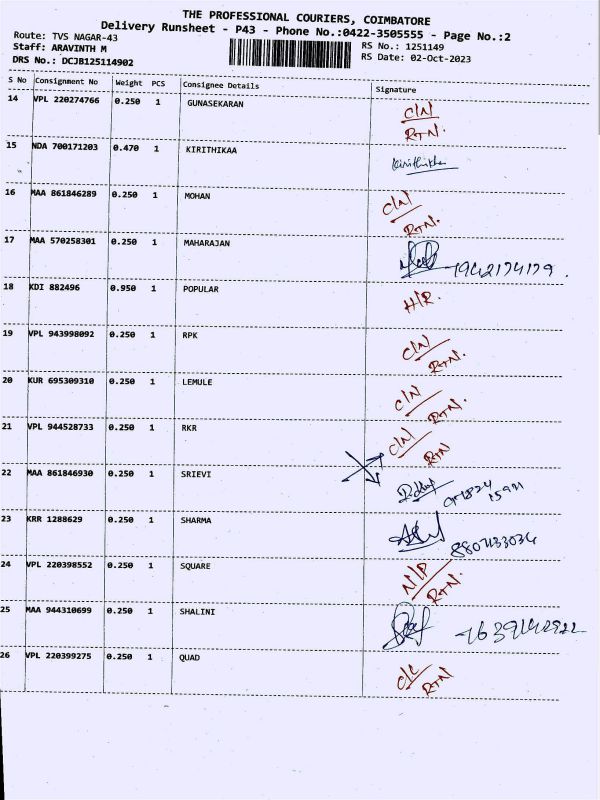 THE PROFESSIONAL COURIERS, COIMBATORE
Delivery Runsheet - P43 - Phone No.:0422-3505555 - Page No.:2
Route: TVS NAGAR-43 RS No.: 1251149
Staff: ARAVINTH M RS Date: 02-Oct-2023
DRS No.: DCJB125114902
S No Consignment No Weight PCS Consignee Details Signature
14 VPL 220274766 0.250 1 GUNASEKARAN C/N
RTN.
15 NDA 700171203 0.470 1 KIRITHIKAA Kirithikha
16 MAA 861846289 0.250 1 MOHAN C/N
RTN.
17 MAA 570258301 0.250 1 MAHARAJAN
18 KDI 882496 0.950 1 POPULAR H/R.
19 VPL 943998092 0.250 1 RPK C/N
RTN.
20 KUR 695309310 0.250 1 LEMULE C/N
RTN.
21 VPL 944528733 0.250 1 RKR C/N
RTN
22 MAA 861846930 0.250 1 SRIEVI
23 KRR 1288629 0.250 1 SHARMA 8807433034
24 VPL 220398552 0.250 1 SQUARE N/P
RTN.
25 MAA 944310699 0.250 1 SHALINI
26 VPL 220399275 0.250 1 QUAD C/C
RTN